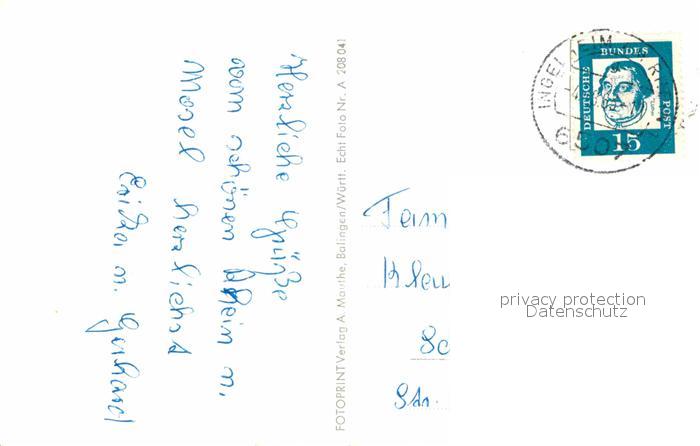 Herzliche Grüße
vom schönen Rhein u.
Mosel herzlichst
Erika u. Gerhard
FOTOPRINT Verlag A. Mauthe, Balingen/Württ. Echt Foto Nr. A 208 041
INGELHEIM
DEUTSCHE
BUNDES
POST
15
Fam
Sc
Str.
privacy protection
Datenschutz